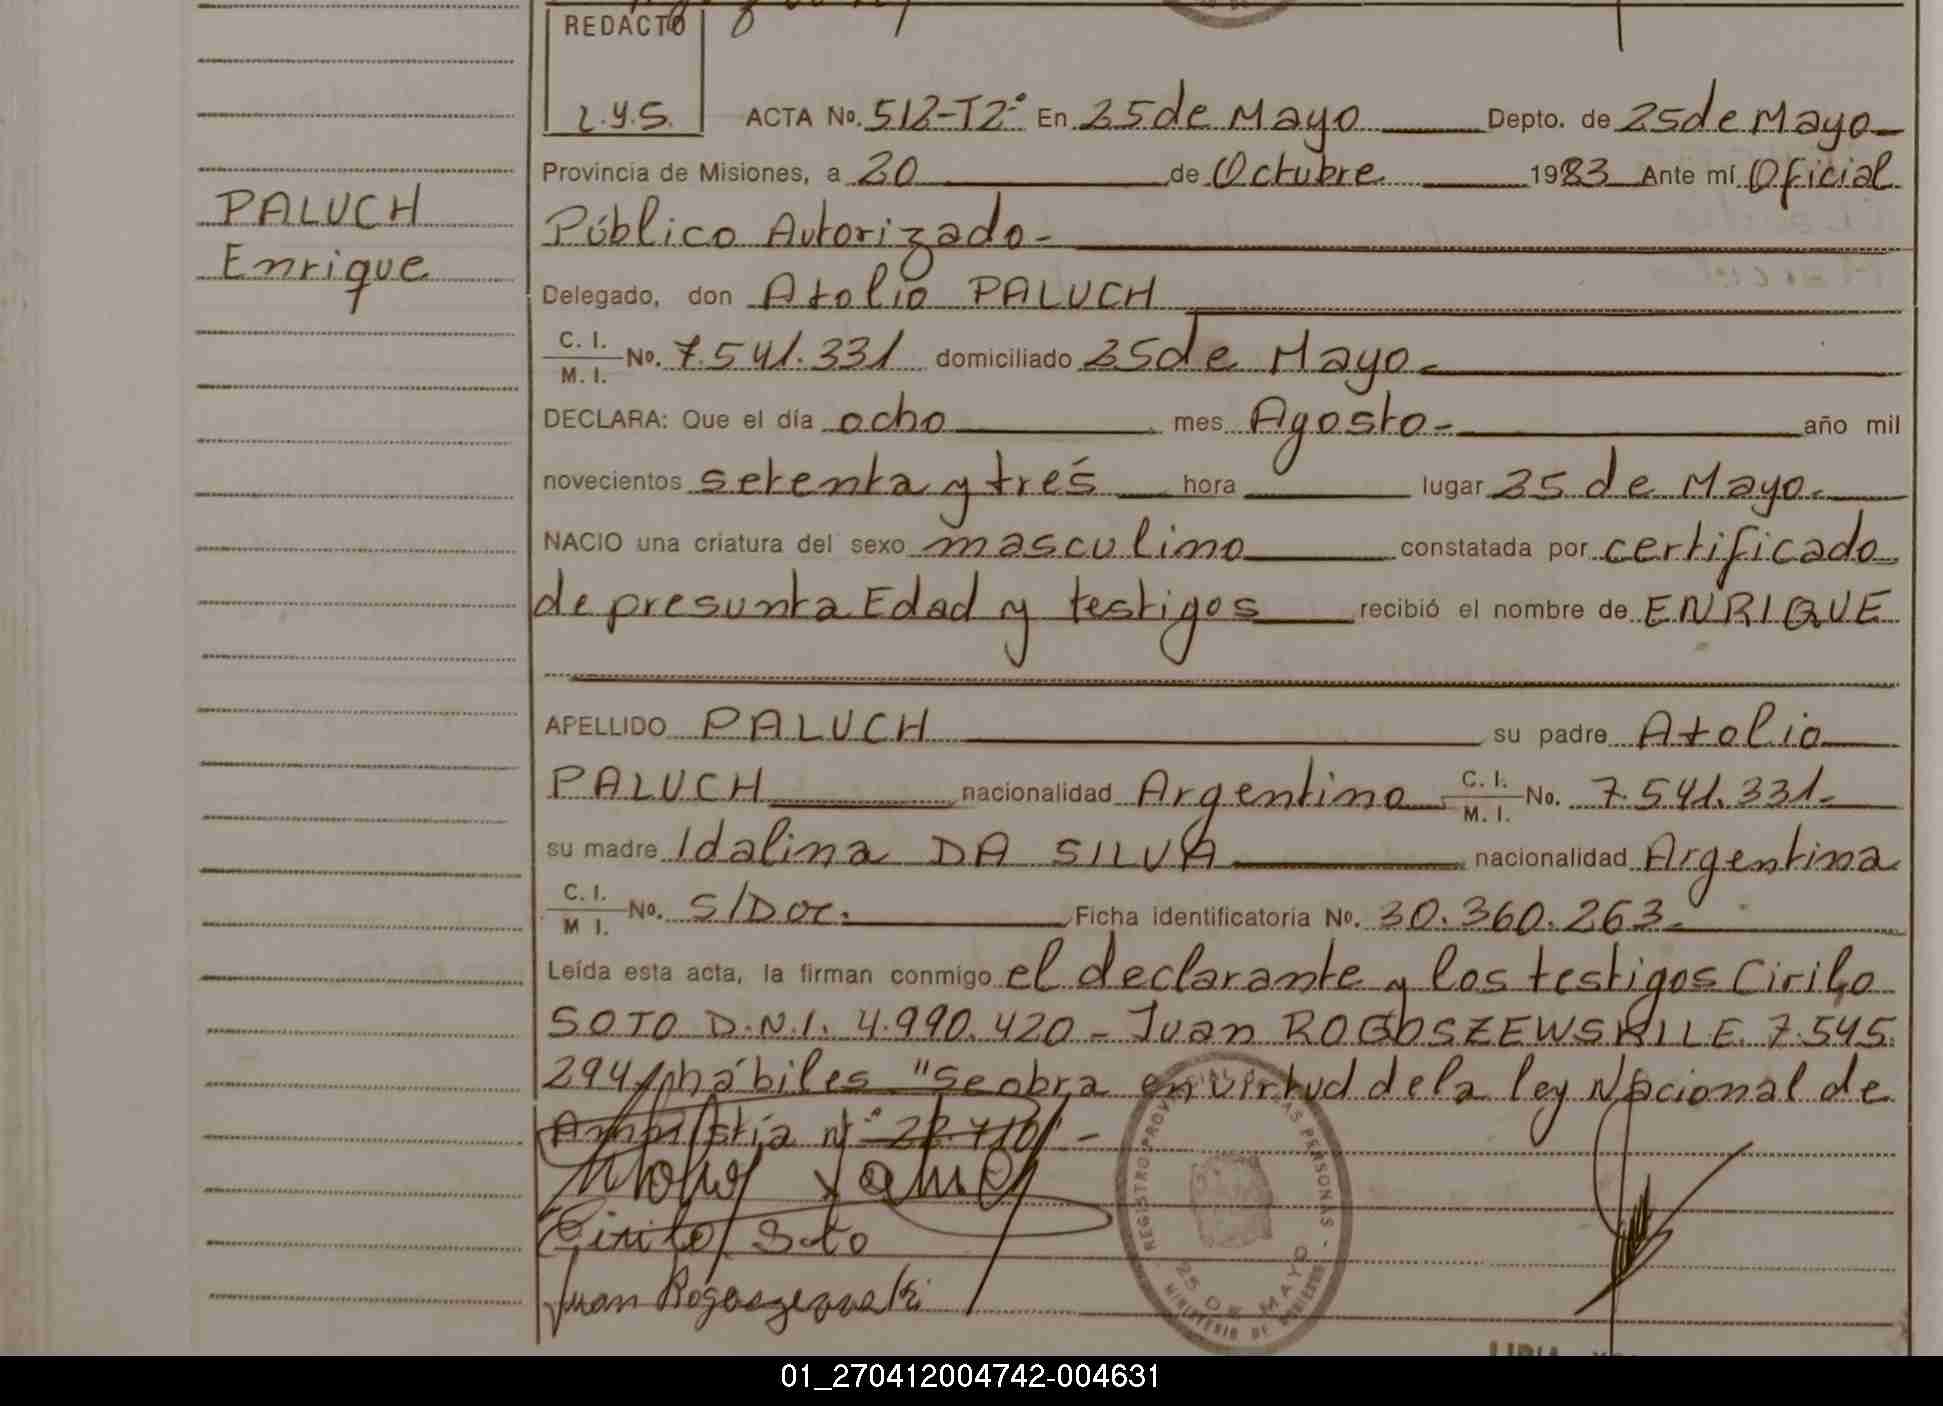 REDACTO
L.Y.S.
ACTA No. 512-T2º En 25 de Mayo Depto. de 25 de Mayo
Provincia de Misiones, a 20 de Octubre 1983 Ante mí Oficial
Público Autorizado-
PALUCH
Enrique
Delegado, don Atolio PALUCH
C. I.
M. I. No. 7.541.331 domiciliado 25 de Mayo-
DECLARA: Que el día ocho mes Agosto- año mil
novecientos setenta y trés hora lugar 25 de Mayo-
NACIO una criatura del sexo masculino constatada por certificado
de presunta Edad y testigos recibió el nombre de ENRIQUE
APELLIDO PALUCH su padre Atolio
PALUCH nacionalidad Argentino C. I.
M. I. No. 7.541.331-
su madre Idalina DA SILVA nacionalidad Argentina
C. I.
M I. No. S/Doc. Ficha identificatoria No. 30.360.263-
Leída esta acta, la firman conmigo el declarante y los testigos Cirilo
SOTO D.N.I. 4.990.420- Juan ROGOSZEWSKI L.E. 7.545.
294 hábiles "Se obra en virtud de la ley Nacional de
Amnistía nº 22.710"-
Cirilo Soto
Juan Rogoszewski
REGISTRO PROVINCIAL DE LAS PERSONAS -
25 DE MAYO
MINISTERIO DE GOBIERNO
01_270412004742-004631